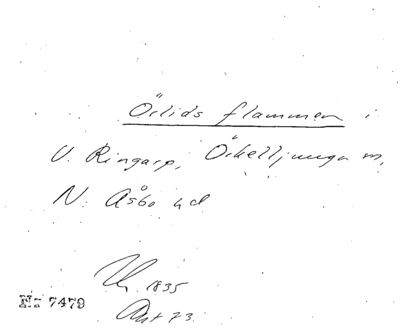 Örlids flammen i
V. Ringarp, Örkelljunga sn,
N. Åsbo hd
1835
Ant 73.
Nr 7479